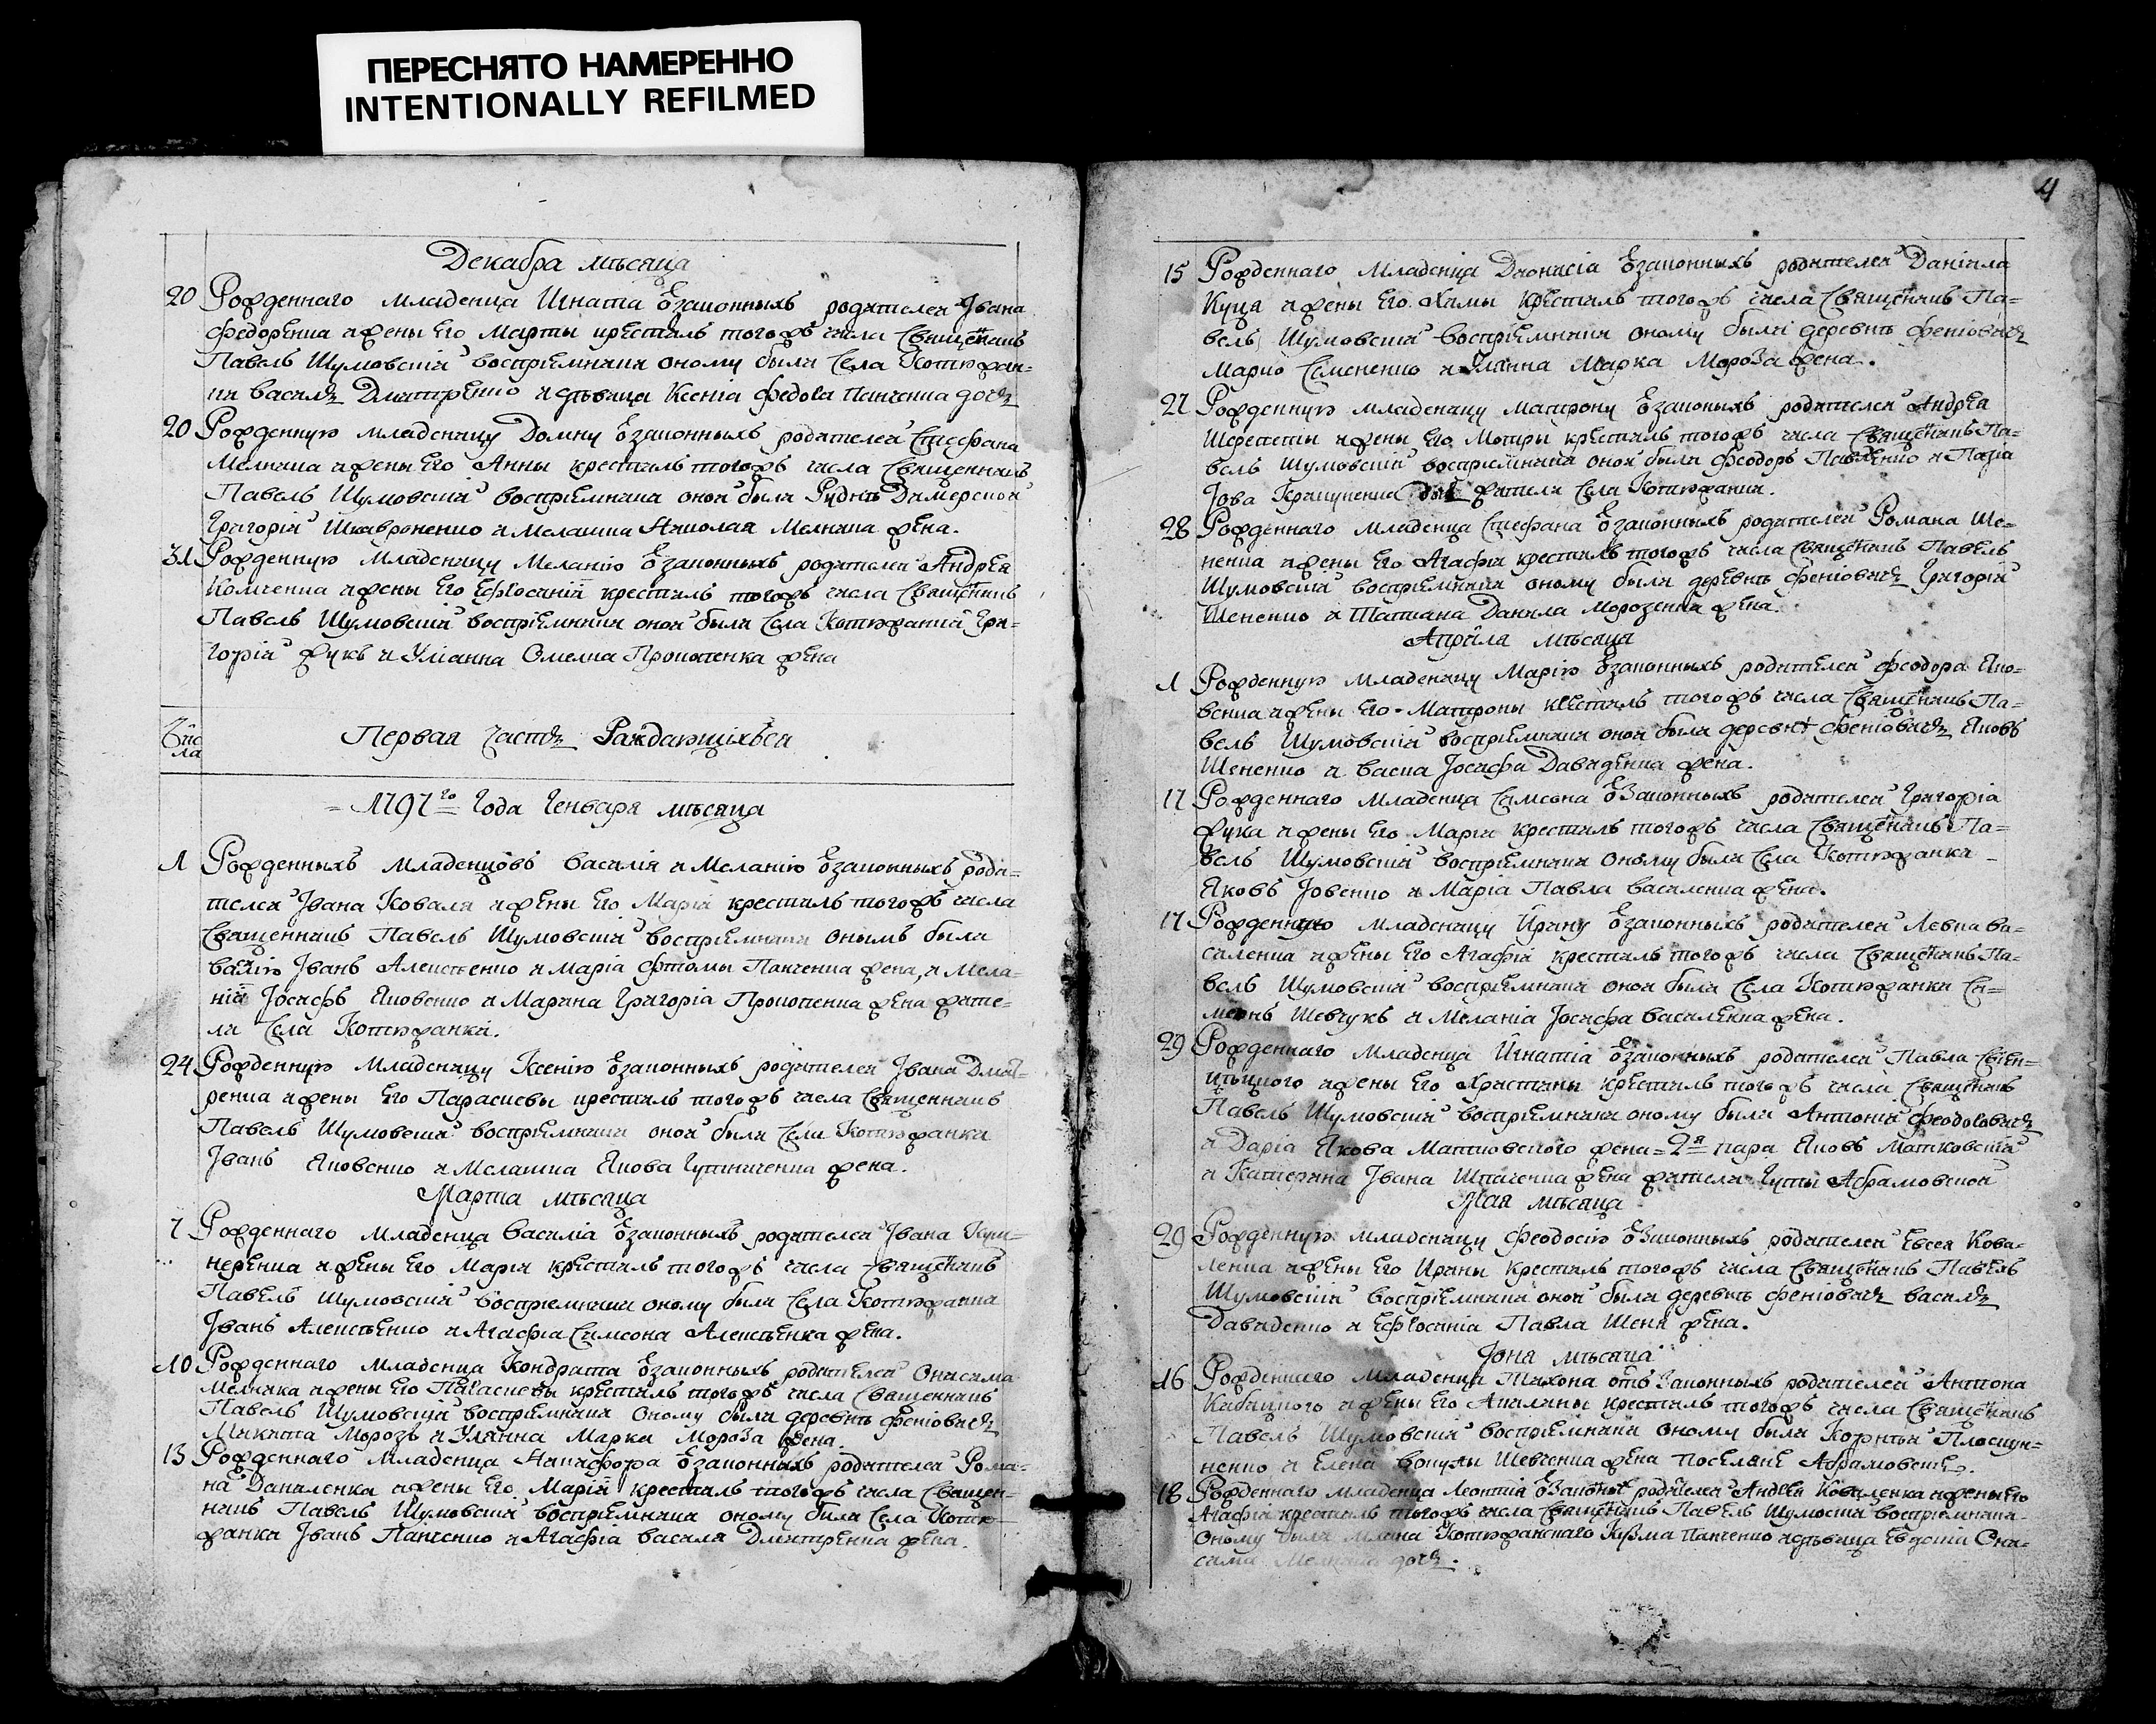 ПЕРЕСНЯТО НАМЕРЕННО
INTENTIONALLY REFILMED
Декабра мѣсяца
20 Рожденнаго младенца Игната Ѿ законныхъ родителей Івана
Федоренка и жены Его Марты крестилъ тогожъ числа Священникъ
Павелъ Шумовскій воспріемники оному были Села Котюжан-
ки Василь Дмитренко и дѣвица Ксенія Федора Панченка дочь
20 Рожденную младеницу Домну Ѿ законныхъ родителей Стефана
Мелника и жены Его Анны крестилъ тогожъ числа Священникъ
Павелъ Шумовскій воспріемники оной были Рудни Димерской
Григорій Шкавроненко и Мелашка Николая Мелника жена.
31 Рожденную Младеницу Меланію Ѿ законныхъ родителей Андрея
Колченка и жены Его Ефросиніи крестилъ тогожъ числа Священникъ
Павелъ Шумовскій воспріемники оной были Села Котюжанки Гри-
горій Жукъ и Уліанна Омелка Прокопенка жена
Чис
ла
Первая часть Раждающихься
1797го Года Генваря мѣсяца
1 Рожденныхъ младенцовъ Василія и Меланію Ѿ законныхъ роди-
телей Івана Коваля и жены Его Маріи крестилъ тогожъ числа
Священникъ Павелъ Шумовскій воспріемники онымъ были
Іванъ Алексѣенко и Марія Фтомы Панченка жена, и Мела-
ніи Іосифъ Яковенко и Марина Григорія Прокопенка жена жите-
ли Села Котюжанки.
24 Рожденную Младеницу Ксенію Ѿ законныхъ родителей Івана Дмит-
ренка и жены Его Парасковы крестилъ тогожъ числа Священникъ
Павелъ Шумовскій воспріемники оной были Села Котюжанки
Іванъ Яковенко и Мелашка Якова Гутниченка жена.
Марта мѣсяца
7 Рожденнаго Младенца Василіа Ѿ законныхъ родителей Івана Куш-
неренка и жены Его Маріи крестилъ тогожъ числа Священникъ
Павелъ Шумовскій воспріемники оному были Села Котюжанки
Іванъ Алексѣенко и Агафіа Симеона Алексѣенка жена.
10 Рожденнаго младенца Кондрата Ѿ законныхъ родителей Онисима
Мелника и жены Его Парасковы крестилъ тогожъ числа Священникъ
Павелъ Шумовскій воспріемники оному были деревнѣ Феніовичь
Микита Морозъ и Улянна Марка Мороза жена.
13 Рожденнаго Младенца Никифора Ѿ законныхъ родителей Рома-
на Даниленка и жены Его Маріи крестилъ тогожъ числа Священ-
никъ Павелъ Шумовскій воспріемники оному были Села Котю-
жанки Іванъ Панченко и Агафіа Василя Дмитренка жена.
4
15 Рожденнаго Младенца Дионисіа Ѿ законныхъ родителей Даніила
Куца и жены Его Химы крестилъ тогожъ числа Священникъ Па-
велъ Шумовскій воспріемники оному были деревнѣ Феніовичь
Марко Семененко и Улянна Марка Мороза жена.
27 Рожденную младеницу Матрону Ѿ законыхъ родителей Андреа
Шерепеты и жены Его Мотри крестилъ тогожъ числа Священникъ Па-
велъ Шумовскій воспріемники оной были Феодоръ Павленко и Пазіа
Іова жители Села Котюжанки.
28 Рожденнаго младенца Стефана Ѿ законныхъ родителей Романа Ше-
ненка и жены Его Агафіи крестилъ тогожъ числа Священникъ Павелъ
Шумовскій воспріемники оному были деревнѣ Феніовичь Григорій
Шененко и Татиана Данила Морозенка жена.
Апрѣля мѣсяца
1 Рожденную младеницу Марію Ѿ законныхъ родителей Феодора Яко-
венка и жены Его Матроны крестилъ тогожъ числа Священникъ Па-
велъ Шумовскій воспріемники оной были деревнѣ Феніовичь Яковъ
Шененко и Васка Іосифа Давиденка жена.
17 Рожденнаго Младенца Симеона Ѿ законныхъ родителей Григоріа
Жука и жены Его Маріи крестилъ тогожъ числа Священникъ Па-
велъ Шумовскій воспріемники оному были Села Котюжанки
Яковъ Іовенко и Маріа Павла Василенка жена.
17 Рожденную Младеницу Ирину Ѿ законныхъ родителей Левка Ва-
силенка и жены Его Агафіи крестилъ тогожъ числа Священникъ Па-
велъ Шумовскій воспріемники оной были Села Котюжанки Си-
меонъ Шевчукъ и Меланіа Іосифа Василенка жена.
29 Рожденнаго Младенца Игнатіа Ѿ законныхъ родителей Павла
и жены Его Христины крестилъ тогожъ числа Священникъ
Павелъ Шумовскій воспріемники оному были Антоній Феодоровичь
и Даріа Якова Матковского жена = 2я пара Яковъ Матковскій
и Катерина Івана Шпаченка жена жители Гуты Абрамовской
Мая мѣсяца
29 Рожденную младеницу Феодосію Ѿ законныхъ родителей Евсея Кова-
ленка и жены Его Ирины крестилъ тогожъ числа Священникъ Павелъ
Шумовскій воспріемники оной были деревнѣ Феніовичь Василь
Давиденко и Ефросиніа Павла Шенка жена.
Іюня мѣсяца
16 Рожденнаго Младенца Тихона отъ законныхъ родителей Антона
Кабацкого и жены Его Акилины крестилъ тогожъ числа Священникъ
Павелъ Шумовскій воспріемники оному были Корнѣй Плоскун-
ненко и Елена Вакулы Шевченка жена Поселяне Абрамовскіе.
18 Рожденнаго Младенца Леонтіа Ѿ законных родителей Андрея Коваленка и жены Его
Агафіи крестилъ тогожъ числа Священникъ Павелъ Шумовскій воспріемники
оному были млина Котюжанского Кузма Панченко и дѣвица Евдокіа Они-
сима Мелника дочь.